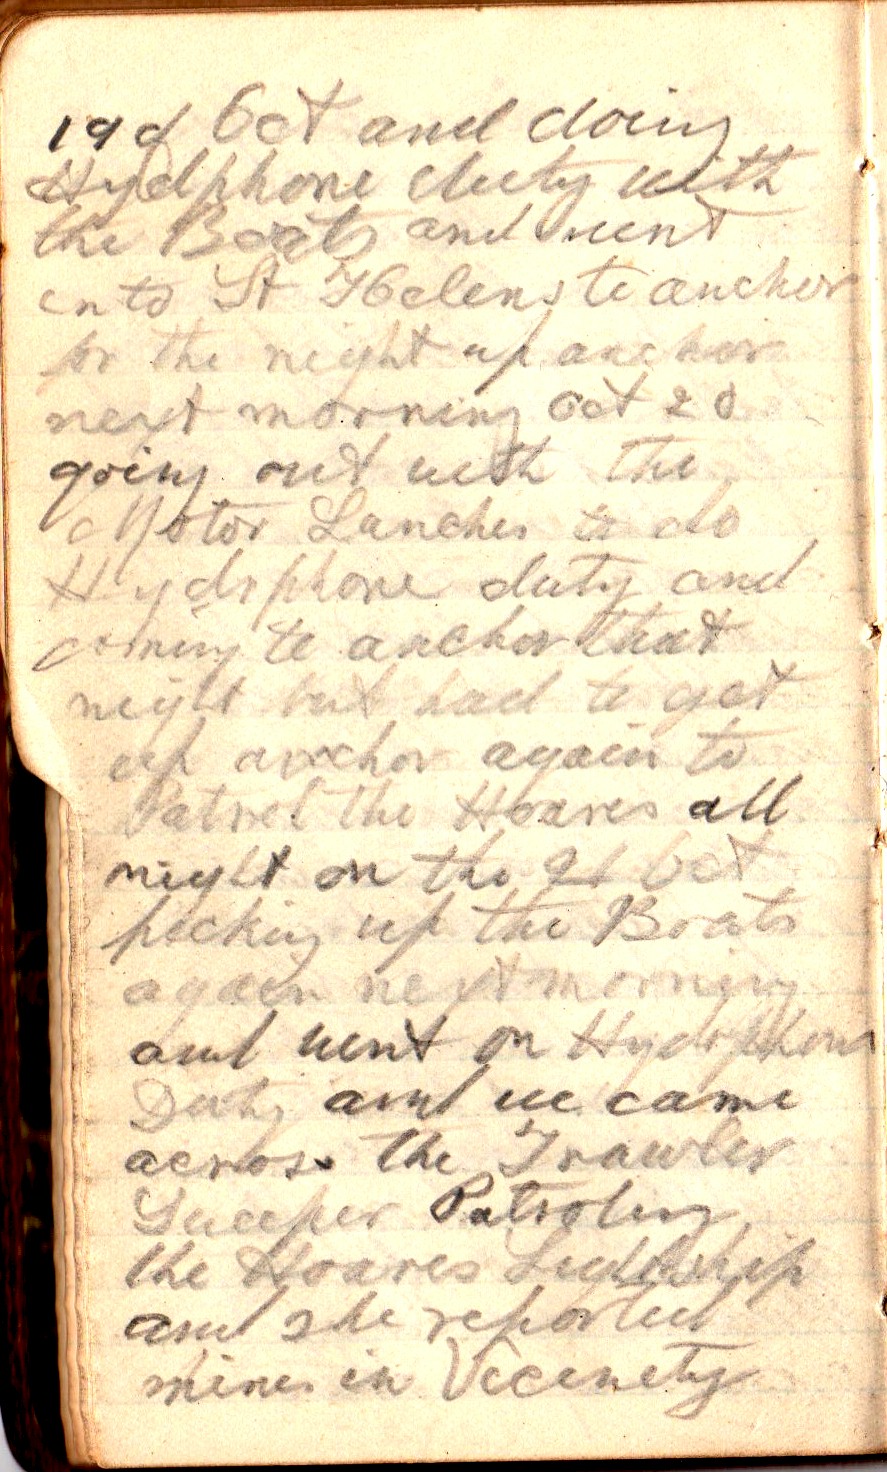 19 of Oct and doing
Hydphone duty with
the Boats and went
into St Helens to anchor
for the night up anchor
next morning Oct 20
going out with the
Motor Lanches to do
Hydrphone duty and
coming to anchor that
night but had to get
up anchor again to
Patrol the Hoares all
night on the 21 Oct
picking up the Boats
again next morning
and went on Hydrphone
Duty and we came
across the Trawler
Sweeper Patroling
the Hoares Lightship
and she reported
mines in Vicenety